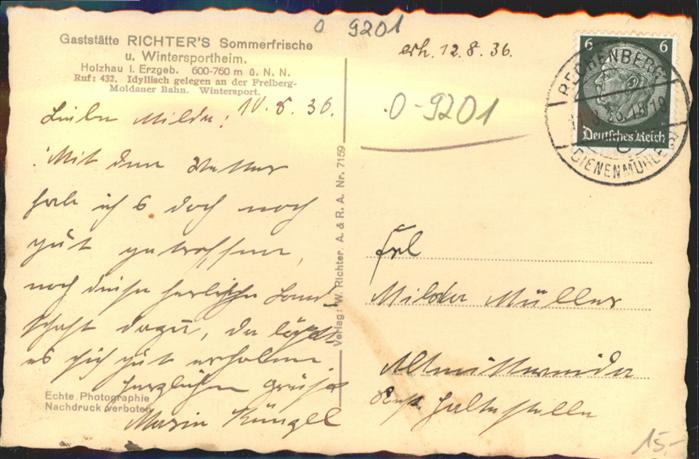 0 9201
Gaststätte RICHTER'S Sommerfrische
u. Wintersportheim.
Holzhau i. Erzgeb. 600-760 m ü. N. N.
Ruf: 432. Idyllisch gelegen an der Freiberg-
Moldauer Bahn. Wintersport.
10.8.36.
Liebe Milda!
Mit dem Wetter
habe ich s doch noch
gut getroffen,
noch diese herrliche Land
schaft dazu, da läßt
es sich gut erholen
herzlichen Grüße
Maria Küngel
Echte Photographie
Nachdruck verboten
Verlag: W. Richter, A. & R. A. Nr. 7159
erh. 12.8.36.
0-9201
6 6
Deutsches Reich
RECHENBERG
BIENENMÜHLE
Frl
Milda Müller
Haltestelle
15,-